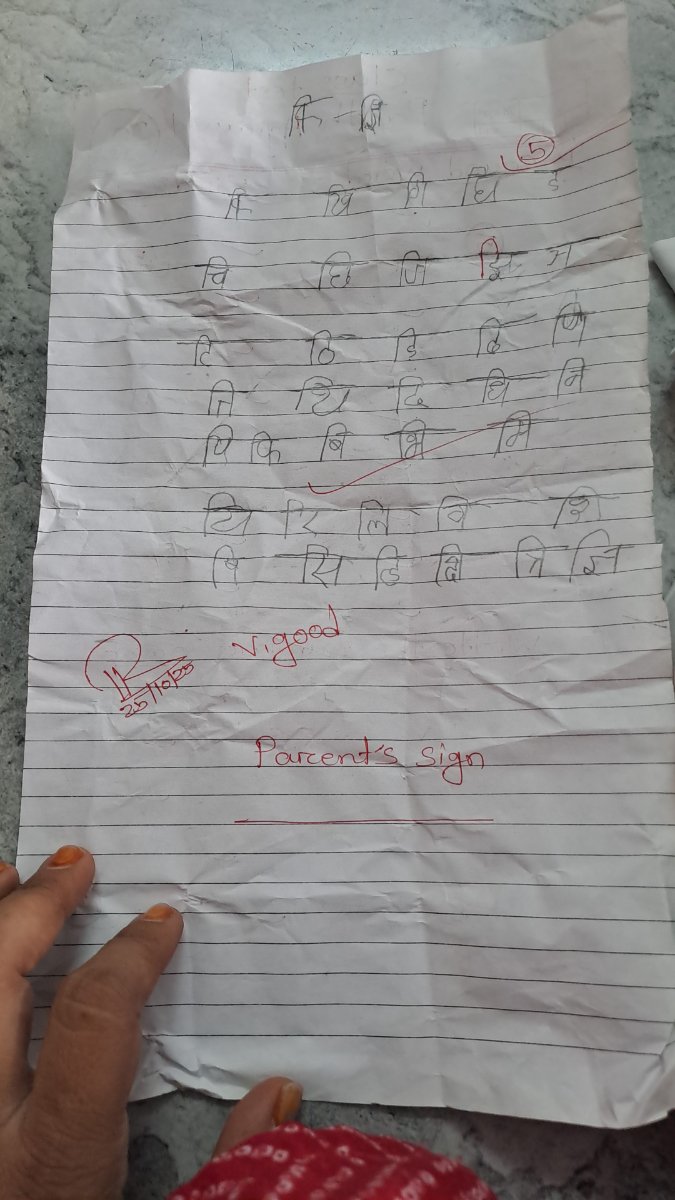 कि - ज्ञि
5
कि खि गि घि ङ
चि छि जि झि ञ
टि ठि डि ढि णि
ति थि दि धि नि
पि फि बि भि मि
यि रि लि वि शि
षि सि हि क्षि त्रि ज्ञि
V.good
25/10/25
Parent's sign